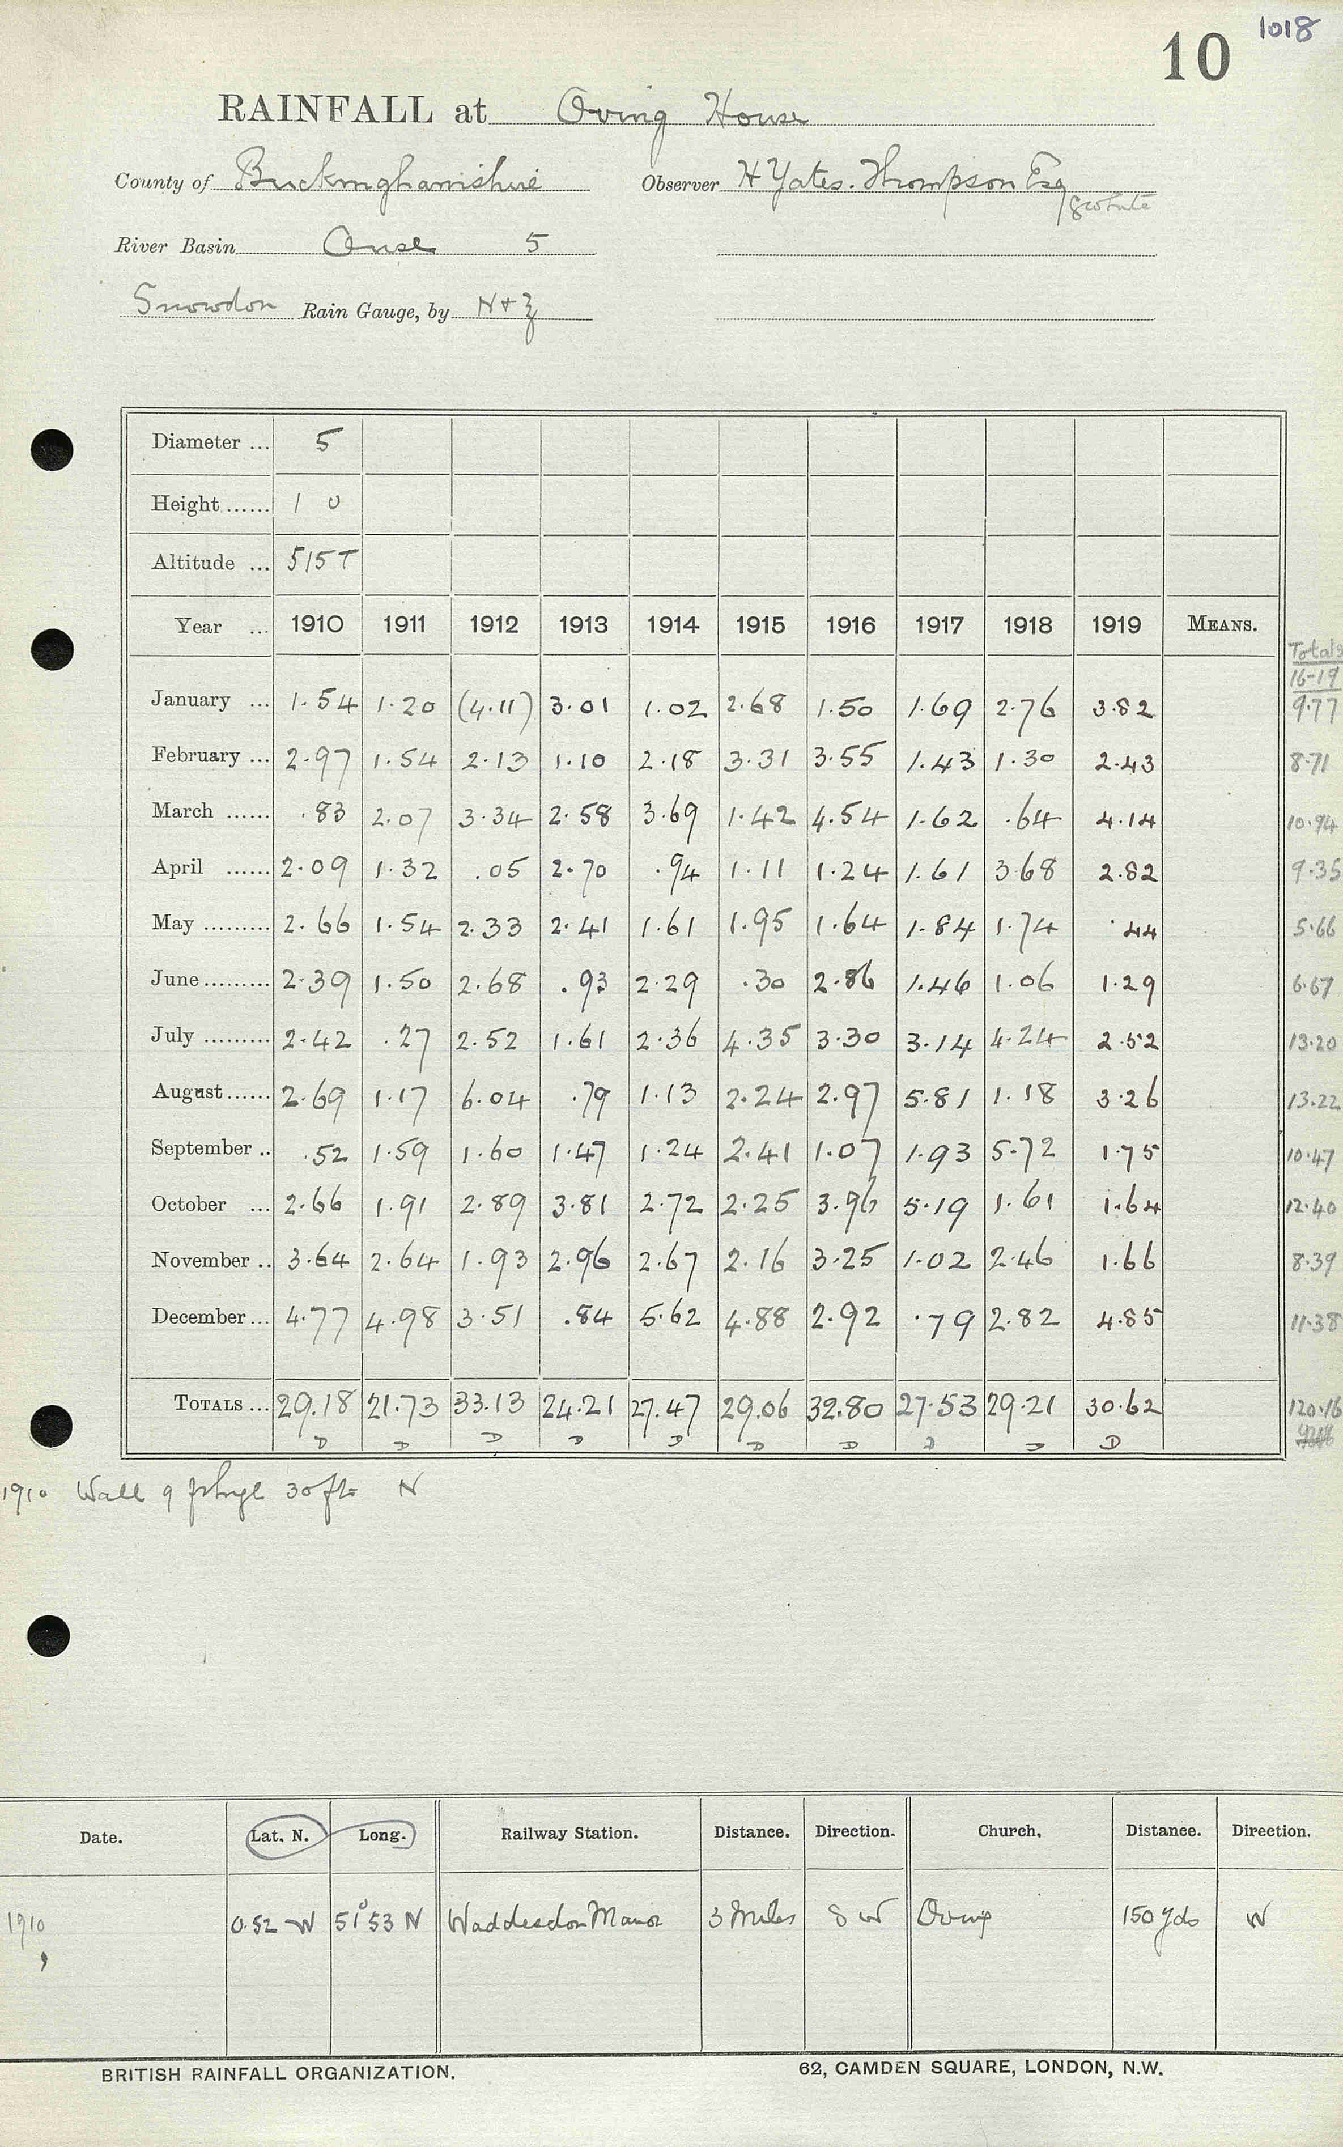 1018
10
RAINFALL at Oving House
County of Buckinghamshire Observer H Yates. Thompson Esq
River Basin Ouse 5
Snowdon Rain Gauge, by N+Z
Diameter ... 5
Height ...... 1 0
Altitude ... 515 T
Year ... 1910 1911 1912 1913 1914 1915 1916 1917 1918 1919 MEANS.
Totals
16-19
January ... 1.54 1.20 (4.11) 3.01 1.02 2.68 1.50 1.69 2.76 3.82 9.77
February ... 2.97 1.54 2.13 1.10 2.18 3.31 3.55 1.43 1.30 2.43 8.71
March ...... .83 2.07 3.34 2.58 3.69 1.42 4.54 1.62 .64 4.14 10.94
April ...... 2.09 1.32 .05 2.70 .94 1.11 1.24 1.61 3.68 2.82 9.35
May ......... 2.66 1.54 2.33 2.41 1.61 1.95 1.64 1.84 1.74 .44 5.66
June ......... 2.39 1.50 2.68 .93 2.29 .30 2.86 1.46 1.06 1.29 6.67
July ......... 2.42 .27 2.52 1.61 2.36 4.35 3.30 3.14 4.24 2.52 13.20
August ...... 2.69 1.17 6.04 .79 1.13 2.24 2.97 5.81 1.18 3.26 13.22
September .. .52 1.59 1.60 1.47 1.24 2.41 1.07 1.93 5.72 1.75 10.47
October ... 2.66 1.91 2.89 3.81 2.72 2.25 3.96 5.19 1.61 1.64 12.40
November .. 3.64 2.64 1.93 2.96 2.67 2.16 3.25 1.02 2.46 1.66 8.39
December ... 4.77 4.98 3.51 .84 5.62 4.88 2.92 .79 2.82 4.85 11.38
TOTALS ... 29.18 21.73 33.13 24.21 27.47 29.06 32.80 27.53 29.21 30.62 120.16
D D D D D D D D D D
1910 Wall 9 ft high 30 ft N
Date. Lat. N. Long. Railway Station. Distance. Direction. Church. Distance. Direction.
1910 0.52 W 51°53 N Waddesdon Manor 3 Miles S W Oving 150 yds W
BRITISH RAINFALL ORGANIZATION. 62, CAMDEN SQUARE, LONDON, N.W.